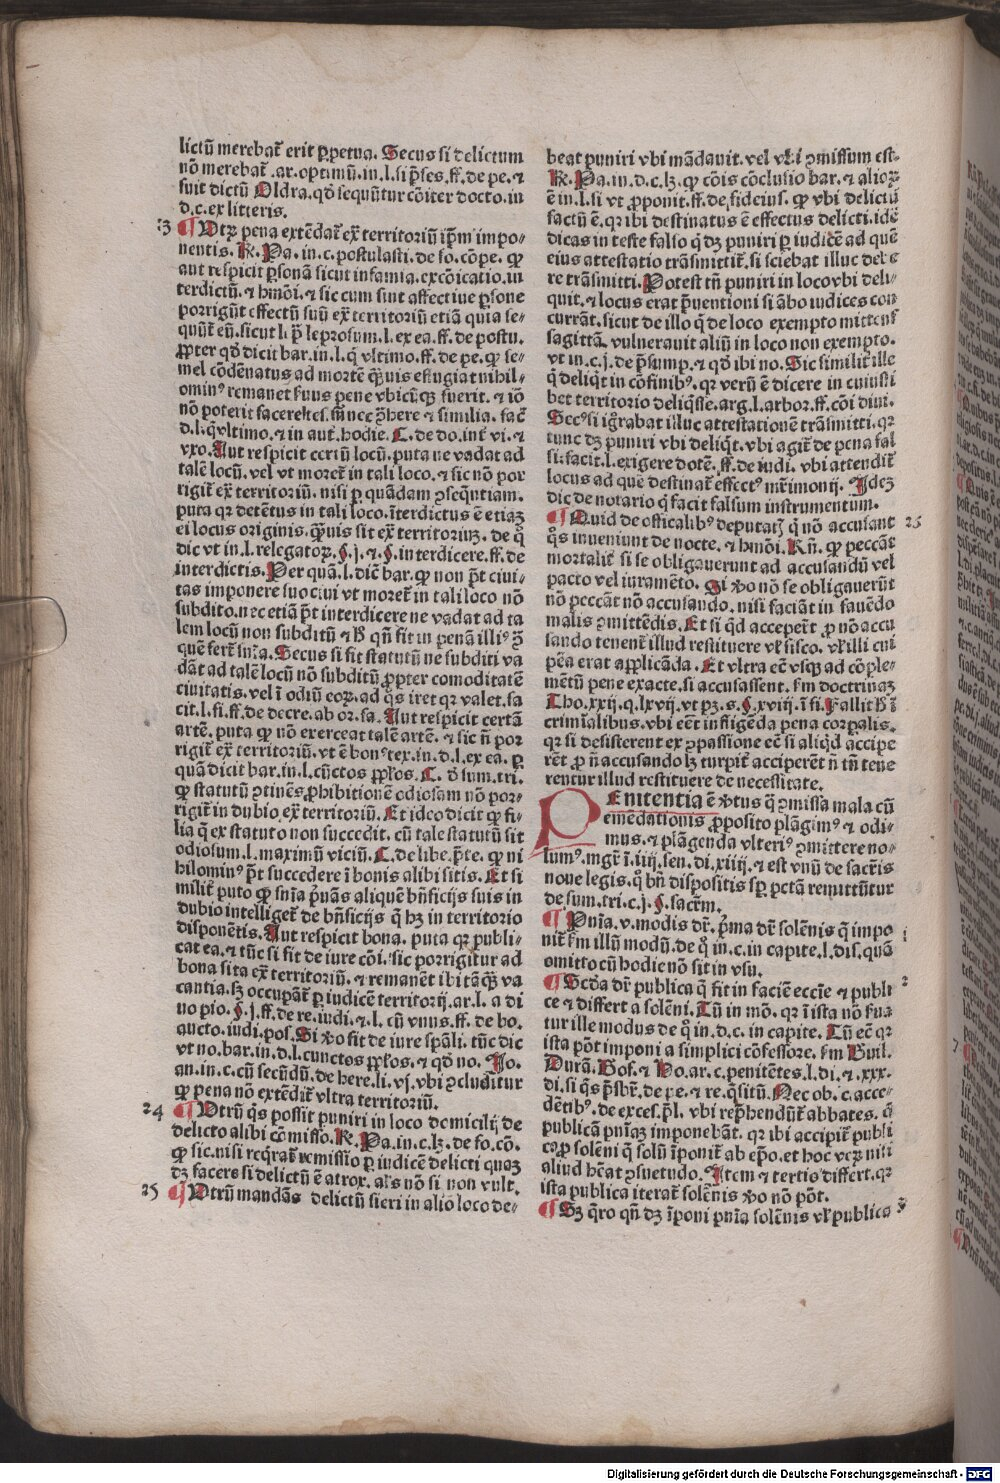 lictū merebat̄ erit ꝑpetua. Secus si delictum
nō merebat̄ .ar. optimū. in. l. si p̄ses. ff. de pe. ⁊
fuit dictū Oldra. qd̓ sequūtur cōiter docto. in
d. c. ex litteris.
23 ¶ Vtꝝ pena extēdat̄ ex̄ territoriū ip̄m impo⸗
nentis. R̄. Pa. in. c. postulasti. de fo. cōpe. ꝙ
aut respicit ꝑsonā sicut infamia. excōicatio. in
terdictū. ⁊ hmōi. ⁊ sic cum sint affectiue ꝑsone
porrigūt effectū suū ex̄ territoriū etiā quia se⸗
quūt̄ eū. sicut l. p̄ leprosum. l. ex ea. ff. de postu.
ꝓpter qd̓ dicit bar. in. l. q̄ vltimo. ff. de pe. ꝙ se⸗
mel cōdēnatus ad mortē q̄ꝫuis effugiat nihil⸗
ominꝰ remanet ẜuus pene vbicūqꝫ fuerit. ⁊ iō
nō poterit facere
d. l. qͥ vltimo. ⁊ in aut̄. hodie. C. de do. int̄ vi. ⁊
vxo. Aut respicit certū locū. puta ne vadat ad
talē locū. vel vt moret̄ in tali loco. ⁊ sic nō por
rigit̄ ex̄ territoriū. nisi ꝑ quādam ꝯseqn̄tiam.
puta qꝛ detētus in tali loco. īterdictus ē etiaꝫ
ei locus originis. q̄ꝫuis sit ex̄ territoriuꝫ. de qͦ
dic vt in. l. relegatoꝝ. §. j. ⁊. §. interdicere. ff. de
interdictis. Per quā. l. dic̄ bar. ꝙ non p̄t ciui⸗
tas imponere suo ciui vt moret̄ in tali loco nō
subdito. nec etiā p̄t interdicere ne vadat ad ta
lem locū non subditū ⁊ ħ qn̄ fit in penā illiꝰ ↄ̄
quē fert̄ sn̄ia. Secus si fit statutū ne subditi va
dāt ad talē locū nō subditū ꝓpter comoditatē
ciuitatis. vel ī odiū eoꝝ. ad q̄s iret qꝛ valet. fa
cit. l. fi. ff. de decre. ab or. fa. Aut respicit certā
artē. puta ꝙ nō exerceat talē artē. ⁊ sic n̄ por
rigit̄ ex̄ territoriū. vt ē bonꝰ tex. in. d. l. ex ea. ꝑ
quā dicit bar. in. l. cūctos ppl̓os. C. d̓ sum. tri.
ꝙ statutū ꝯtinēs ꝓhibitionē odiosam nō por⸗
rigit̄ in dubio ex̄ territoriū. Et ideo dicit ꝙ fi⸗
lia q̄ ex statuto non succedit. cū tale statutū sit
odiosum. l. maximū viciū. C. de libe. p̄te. ꝙ ni
hilominꝰ p̄t succedere ī bonis alibi sitis. Et si
milit̄ puto ꝙ sn̄ia p̄uās aliquē bn̄ficijs suis in
dubio intelliget̄ de bn̄ficijs q̄ hꝫ in territorio
disponētis. Aut respicit bona. puta qꝛ publi⸗
cat ea. ⁊ tūc si fit de iure cōi. sic porrigitur ad
bona sita ex̄ territoriū. ⁊ remanēt ibi tāqꝫ va
cantia. sꝫ occupāt̄ ꝑ iudicē territorij. ar. l. a di
uo pio. §. j. ff. de re. iudi. ⁊. l. cū vnus. ff. de bo.
aucto. iudi. pos. Si v̓o fit de iure spāli. tūc dic
vt no. bar. in. d. l. cunctos ppl̓os. ⁊ qd̓ no. Jo.
an. in. c. cū secūdū. de here. li. vj. vbi ꝯcluditur
ꝙ pena nō extēdit̄ vltra territoriū.
24 ¶ Vtrū qͥs possit puniri in loco domicilij de
delicto alibi cōmisso. R̄. Pa. in. c. lꝫ. de fo. cō.
ꝙ sic. nisi reqͥrat̄ remissio ꝑ iudicē delicti quaꝫ
dꝫ facere si delictū ē atrox. al̓s nō si non vult.
25 ¶ Vtrū mandās delictū fieri in alio loco de⸗
beat puniri vbi mādauit. vel vbi ꝯmissum est.
R̄. Pa. in. d. c. lꝫ. ꝙ cōis cōclusio bar. ⁊ alioꝝ
ē in. l. si vt ꝓponit. ff. de fideius. ꝙ vbi delictū
factū ē. qꝛ ibi destinatus ē effectus delicti. idē
dicas in teste falso q̄ dꝫ puniri ꝑ iudicē ad quē
eius attestatio trāsmittit̄. si sciebat illuc debe
re trāsmitti. Potest tn̄ puniri in loco vbi deli⸗
quit. ⁊ locus erat p̄uentioni si ābo iudices con
currāt. sicut de illo q̄ de loco exempto mittens
sagittā. vulnerauit aliū in loco non exempto.
vt in. c. j. de p̄sump. ⁊ qd̓ ibi no. Sic similit̄ ille
q̄ deliqͥt in cōfinibꝰ. qꝛ verū ē dicere in cuiusli
bet territorio deliqͥsse. arg. l. arbor. ff. cōi diui.
Secꝰ si igͦrabat illuc attestationē trāsmitti. qꝛ
tunc dꝫ puniri vbi deliqͥt. vbi agit̄ de pena fal
si. facit. l. exigere dotē. ff. de iudi. vbi attendit̄
locus ad quē destinat̄ effectꝰ mr̄imonij. Jdeꝫ
dic de notario q̄ facit falsum instrumentum.
¶ Quid de officalibꝰ deputatꝭ q̄ nō accusant 25
qͦs inueniunt de nocte. ⁊ hmōi. Rn̄. ꝙ peccāt
mortalit̄ si se obligauerunt ad accusandū vel
pacto vel iuramēto. Si v̓o nō se obligauerūt
nō peccāt nō accusando. nisi faciāt in fauēdo
malis ꝯmittēdis. Et si qͥd acceper̄t ꝓ nō accu
sando tenent̄ illud restituere vl̓ fisco. vl̓ illi cui
pēa erat applicāda. Et vltra eē vsqꝫ ad cōple⸗
mētū pene exacte. si accusassent. ẜm doctrinaꝫ
Tho. xxij. q. lxvij. vt pꝫ. s. §. xviij. ī fi. Fallit ħ ī
criminalibus. vbi eēt infligēda pena corꝑalis.
qꝛ si desisterent ex ꝯpassione eē si aliqͥd accipe
rēt ꝓ n̄ accusando lꝫ turpit̄ acciperēt n̄ tn̄ tene
rentur illud restituere de necessitate.
Penitentia ē v̓tus q̄ ꝯmissa mala cū
emēdationis ꝓposito plāgimꝰ ⁊ odi⸗
mus. ⁊ plāgenda vlteriꝰ ꝯmittere no⸗
lumꝰ. mgr̄ ī. iiij. sen. di. xiiij. ⁊ est vnū de sacr̄is
noue legis. qͦ bn̄ dispositis sp̄ pctā remittūtur
de sum. tri. c. j. §. sacrm̄.
¶ Pn̄ia. v. modis dr̄. p̄ma dr̄ solēnis q̄ impo 1
nit̄ ẜm illū modū. de qͦ in. c. in capite. l. dis. quā
omitto cū hodie nō sit in vsu.
¶ Scd̓a dr̄ publica q̄ fit in faciē ecc̄ie ⁊ publi 2
ce ⁊ differt a solēni. Tū in mō. qꝛ ī ista nō ẜua
tur ille modus de qͦ in. d. c. in capite. Tū eē qꝛ
ista pōt imponi a simplici cōfessore. ẜm Guil.
Durā. Hos. ⁊ Ho. ar. c. penitētes. l. di. ⁊. xxx.
di. si q̄s p̄sbr̄. de pe. ⁊ re. q̄sitū. Nec ob. c. acce⸗
dētibꝰ. de exces. p̄l. vbi rep̄hendūt̄ abbates. q̄
publicā pn̄iaꝫ imponebāt. qꝛ ibi accipit̄ publi
ca ꝓ solēni q̄ solū īponit̄ ab ep̄o. et hoc veꝝ nisi
aliud hēat ꝯsuetudo. Item ⁊ tertio differt. qꝛ
ista publica iterat̄ solēnis v̓o nō pōt.
¶ Sꝫ q̄ro qn̄ dꝫ īponi pn̄ia solēnis vl̓ publica 3
Digitalisierung gefördert durch die Deutsche Forschungsgemeinschaft - DFG